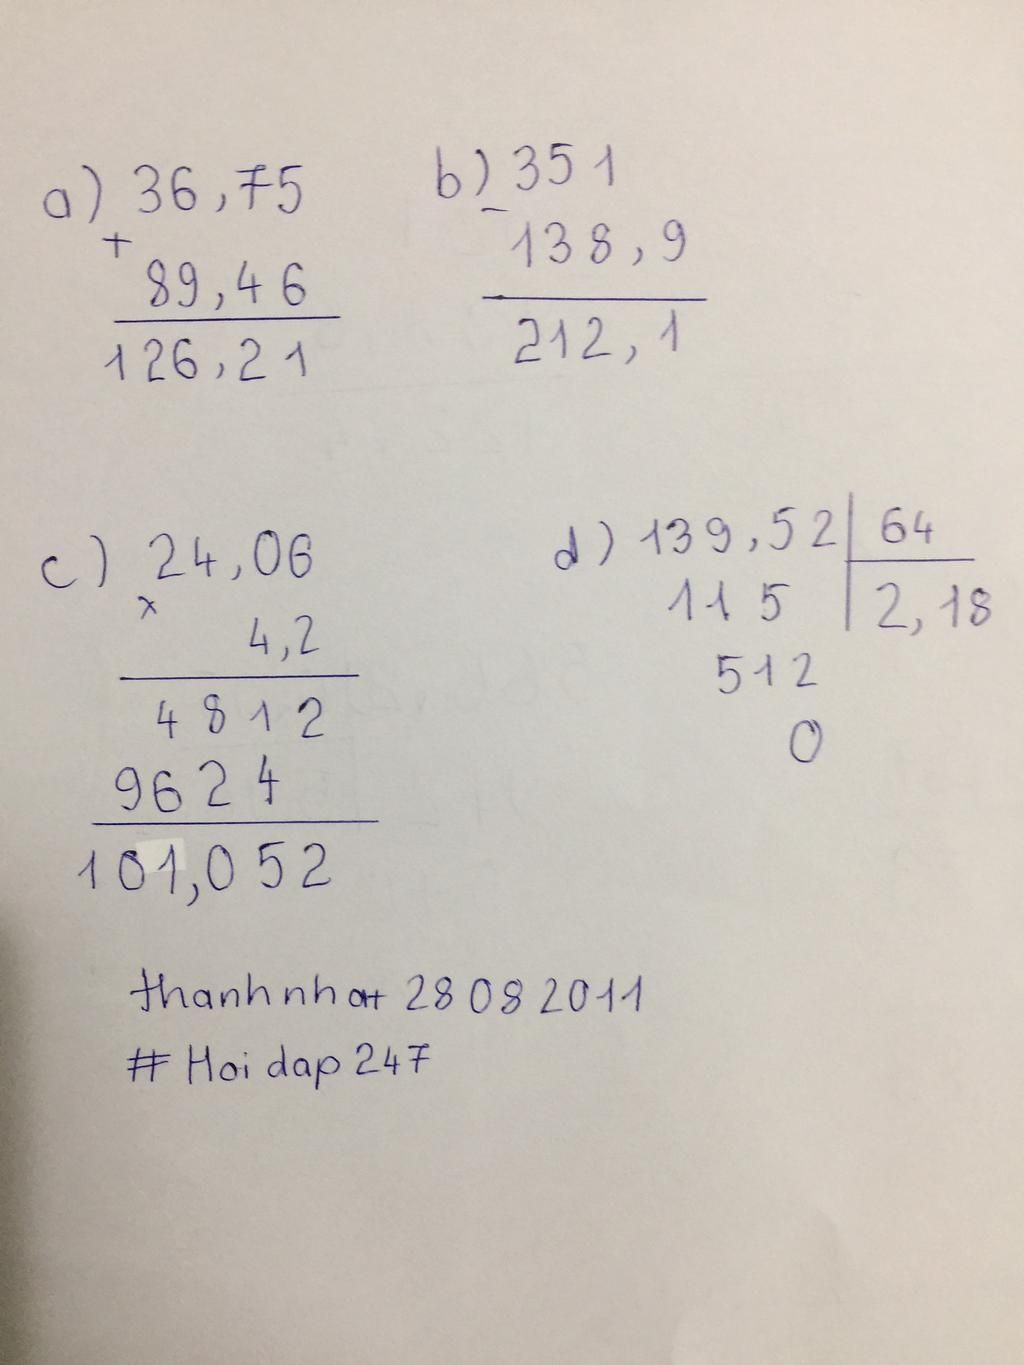 a) 36,75
+
89,46
126,21
b) 351
-
138,9
212,1
c) 24,06
x
4,2
4812
9624
101,052
d) 139,52 64
115 2,18
512
0
thanhnhat 28082011
# Hoidap247